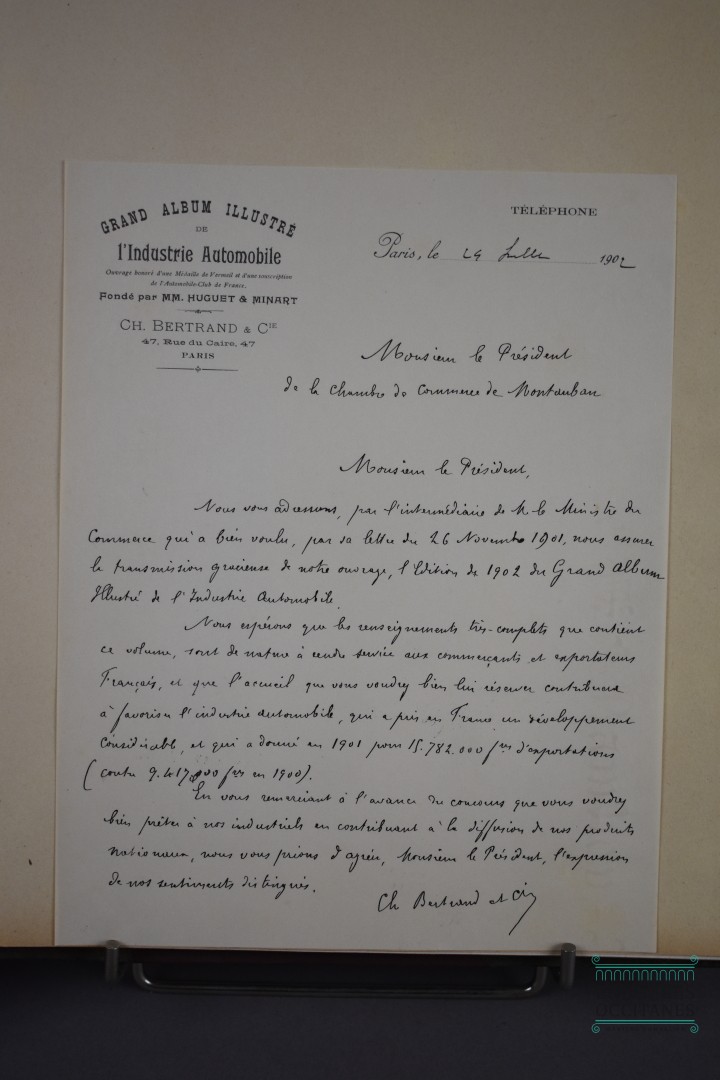 GRAND ALBUM ILLUSTRÉ
DE
l'Industrie Automobile
Ouvrage honoré d'une Médaille de Vermeil et d'une souscription
de l'Automobile-Club de France.
Fondé par MM. HUGUET & MINART
CH. BERTRAND & CIE
47, Rue du Caire, 47
PARIS
TÉLÉPHONE
Paris, le 24 1902
Monsieur le Président
de la Chambre de Commerce de Montauban
Monsieur le Président,
Nous vous adressons, par l'intermédiaire de M. le Ministre du
Commerce qui a bien voulu, par sa lettre du 26 Novembre 1901, nous assurer
la transmission gracieuse de notre ouvrage, l'Edition de 1902 du Grand Album
Illustré de l'Industrie Automobile.
Nous espérons que les renseignements très-complets que contient
ce volume, sont de nature à rendre service aux commerçants et exportateurs
Français, et que l'accueil que vous voudrez bien lui réserver contribuera
à favoriser l'industrie automobile, qui a pris en France un développement
considérable, et qui a donné en 1901 pour 15.782.000 frs d'exportations
(contre 9.417.000 frs en 1900).
En vous remerciant à l'avance du concours que vous voudrez
bien prêter à nos industriels en contribuant à la diffusion de nos produits
nationaux, nous vous prions d'agréer, Monsieur le Président, l'expression
de nos sentiments distingués.
Ch Bertrand et Cie
OCCITANIE